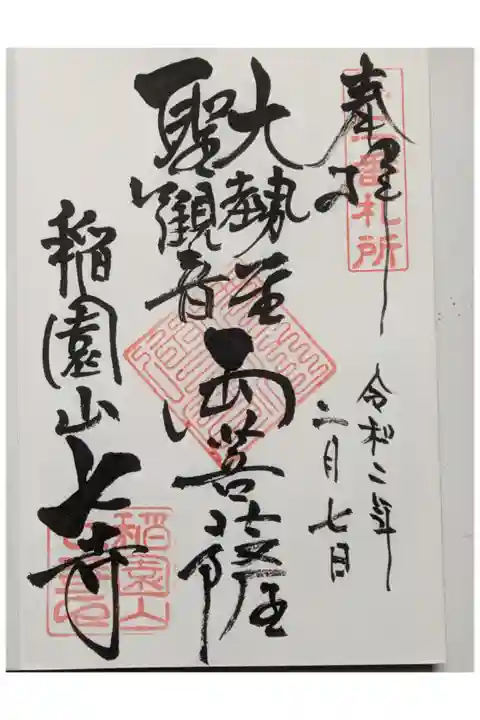 奉拝
番札所
令和二年
二月七日
大勢至
聖観音
両菩薩
稲園山七寺
稲園山